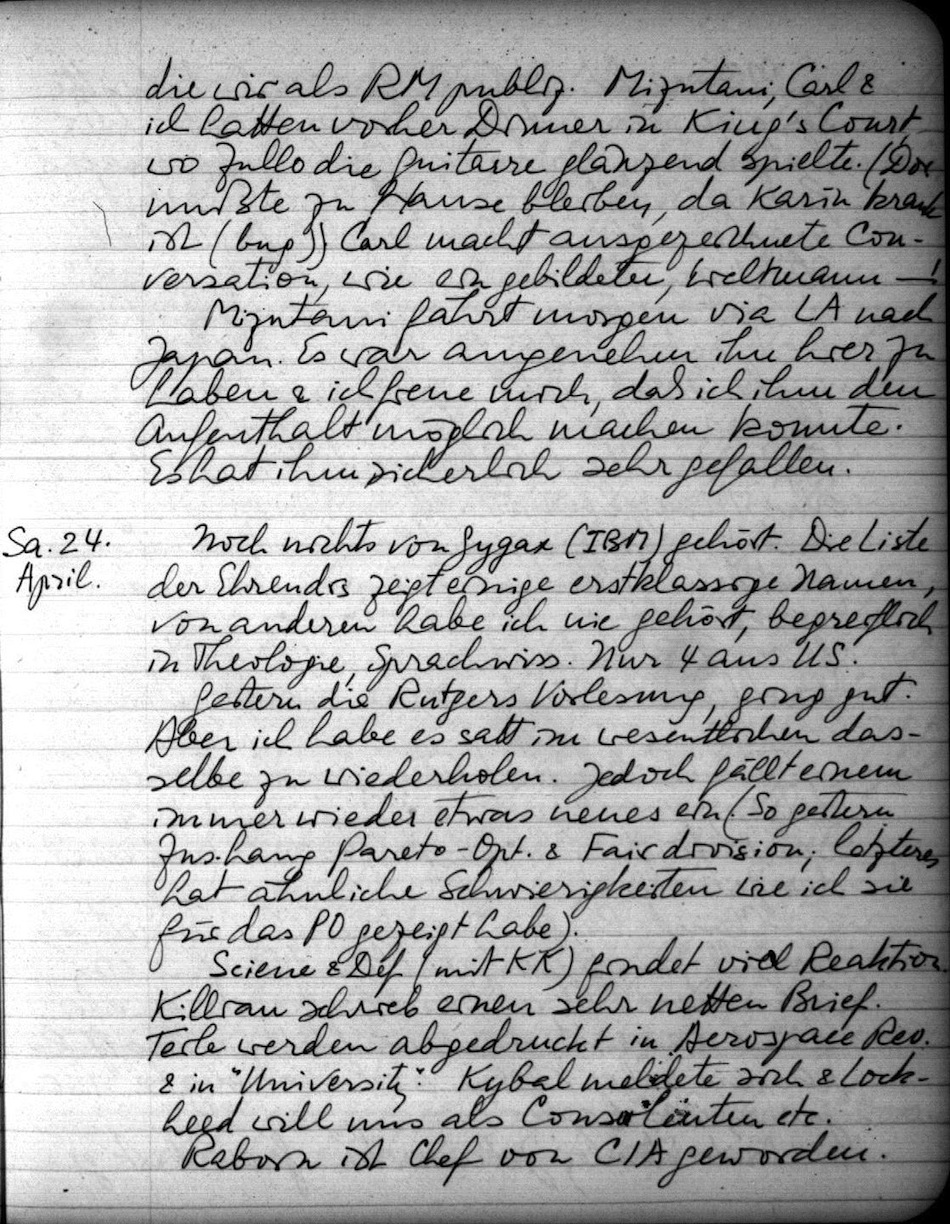 die wir als RM publiz. Mizutani, Carl &
ich hatten vorher Dinner in King's Court,
wo Zullo die Guitarre glänzend spielte. (Dor
mußte zu Hause bleiben, da Karin krank
ist (bug)) Carl macht ausgezeichnete Con-
versation, wie ein gebildeter, Weltmann —!
Mizutani fährt morgen via LA nach
Japan. Es war angenehm ihn hier zu
haben & ich freue mich, daß ich ihm den
Aufenthalt möglich machen konnte.
Es hat ihm sicherlich sehr gefallen.
Sa. 24.
April.
Noch nichts von Gygax (IBM) gehört. Die Liste
der Ehrendrs zeigt einige erstklassige Namen,
von anderen habe ich nie gehört, begreiflich
in Theologie, Sprachwiss. Nur 4 aus US.
Gestern die Rutgers Vorlesung, ging gut.
Aber ich habe es satt im wesentlichen das-
selbe zu wiederholen. Jedoch fällt einem
immer wieder etwas neues ein (So gestern
Zus.hang Pareto-Opt. & Fair division; letzteres
hat ähnliche Schwierigkeiten wie ich sie
für das PO gezeigt habe).
Science & Def (mit KK) findet viel Reaktion
Killian schrieb einen sehr netten Brief.
Teile werden abgedruckt in Aerospace Rev.
& in "University". Kybal meldete sich & Lock-
heed will uns als Consultenten etc.
Raborn ist Chef von CIA geworden.